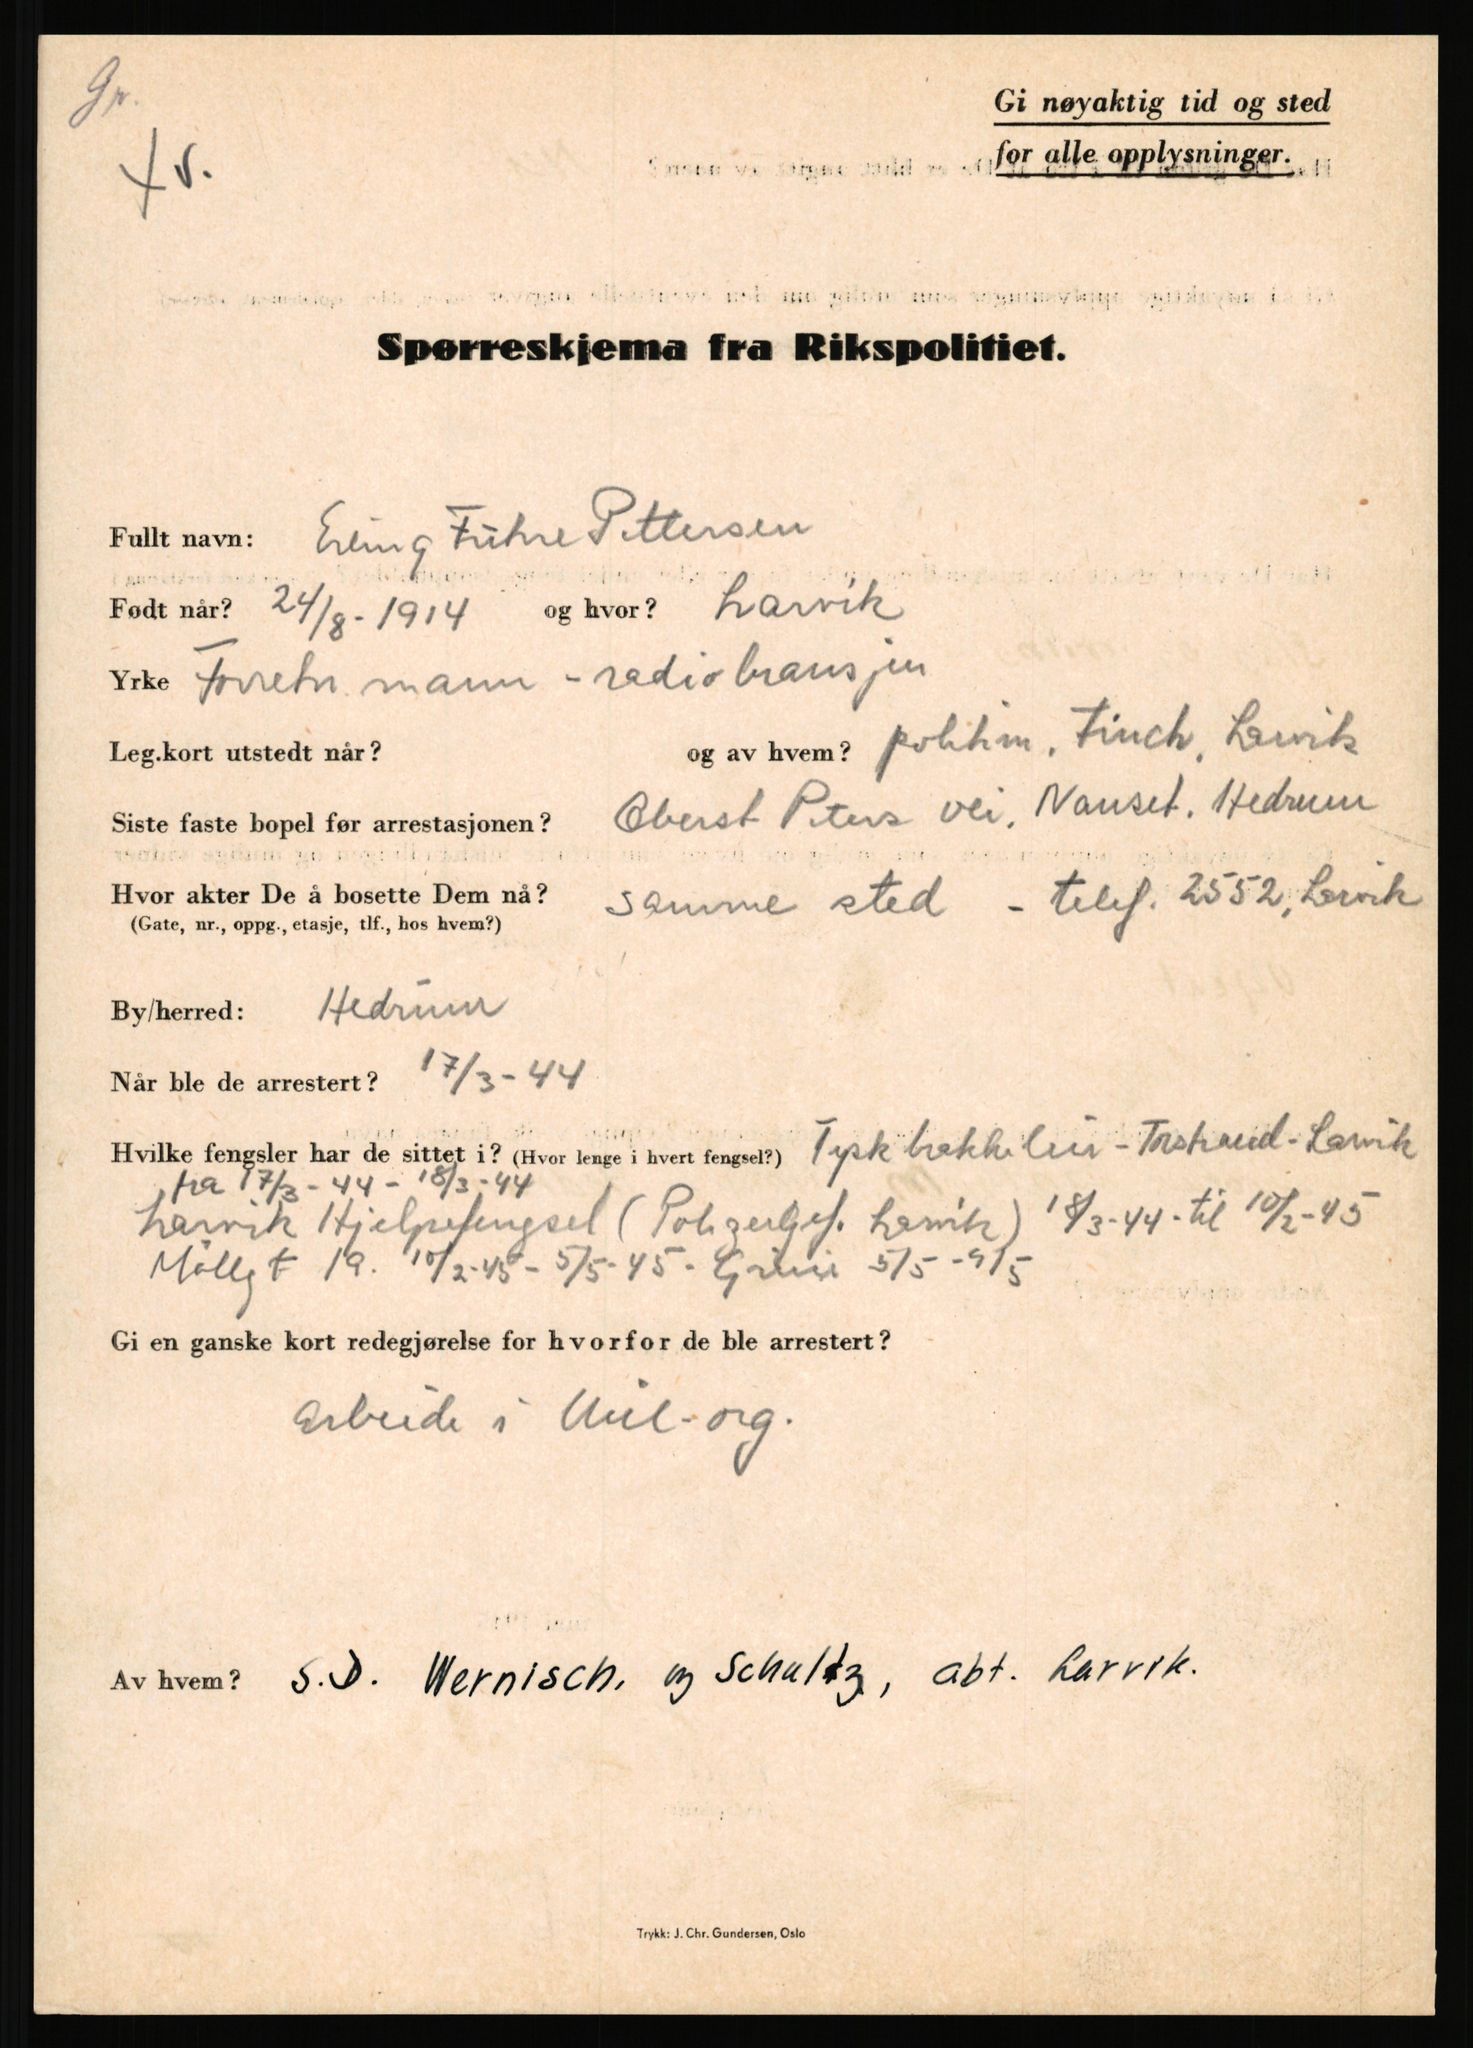 Gr.
Gi nøyaktig tid og sted
for alle opplysninger.
Spørreskjema fra Rikspolitiet.
Fullt navn: Erling Führe Pettersen
Født når? 24/8-1914 og hvor? Larvik
Yrke Forretn. mann - radiobransjen
Leg.kort utstedt når? og av hvem? politim. Finch, Larvik
Siste faste bopel før arrestasjonen? Oberst Peters vei, Nanset. Hedrum
Hvor akter De å bosette Dem nå? samme sted - telef. 2552, Larvik
(Gate, nr., oppg., etasje, tlf., hos hvem?)
By/herred: Hedrum
Når ble de arrestert? 17/3-44
Hvilke fengsler har de sittet i? (Hvor lenge i hvert fengsel?) Tysk brakkeleir - Torstrand - Larvik
fra 17/3-44 - 18/3-44
Larvik Hjelpefengsel (Polizeigef. Larvik) 18/3-44 - til 10/2-45
Möllegt 19. 10/2-45 - 5/5-45 - Grini 5/5 - 9/5
Gi en ganske kort redegjørelse for hvorfor de ble arrestert?
arbeide i Mil-org.
Av hvem? S.D. Wernisch. og Schultz, abt. Larvik.
Trykk: J. Chr. Gundersen, Oslo